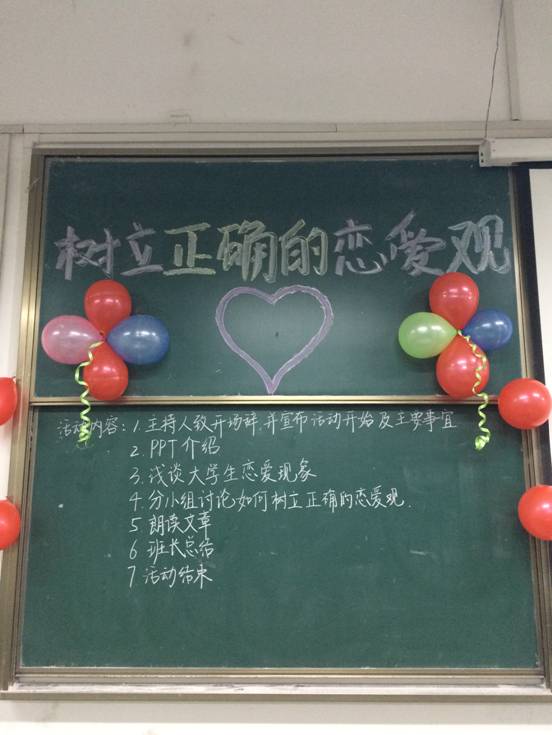 树立正确的恋爱观
活动内容：1.主持人致开场辞,并宣布活动开始及主要事宜
2.PPT介绍
3.浅谈大学生恋爱现象
4.分小组讨论:如何树立正确的恋爱观.
5 朗读文章
6 班长总结
7 活动结束